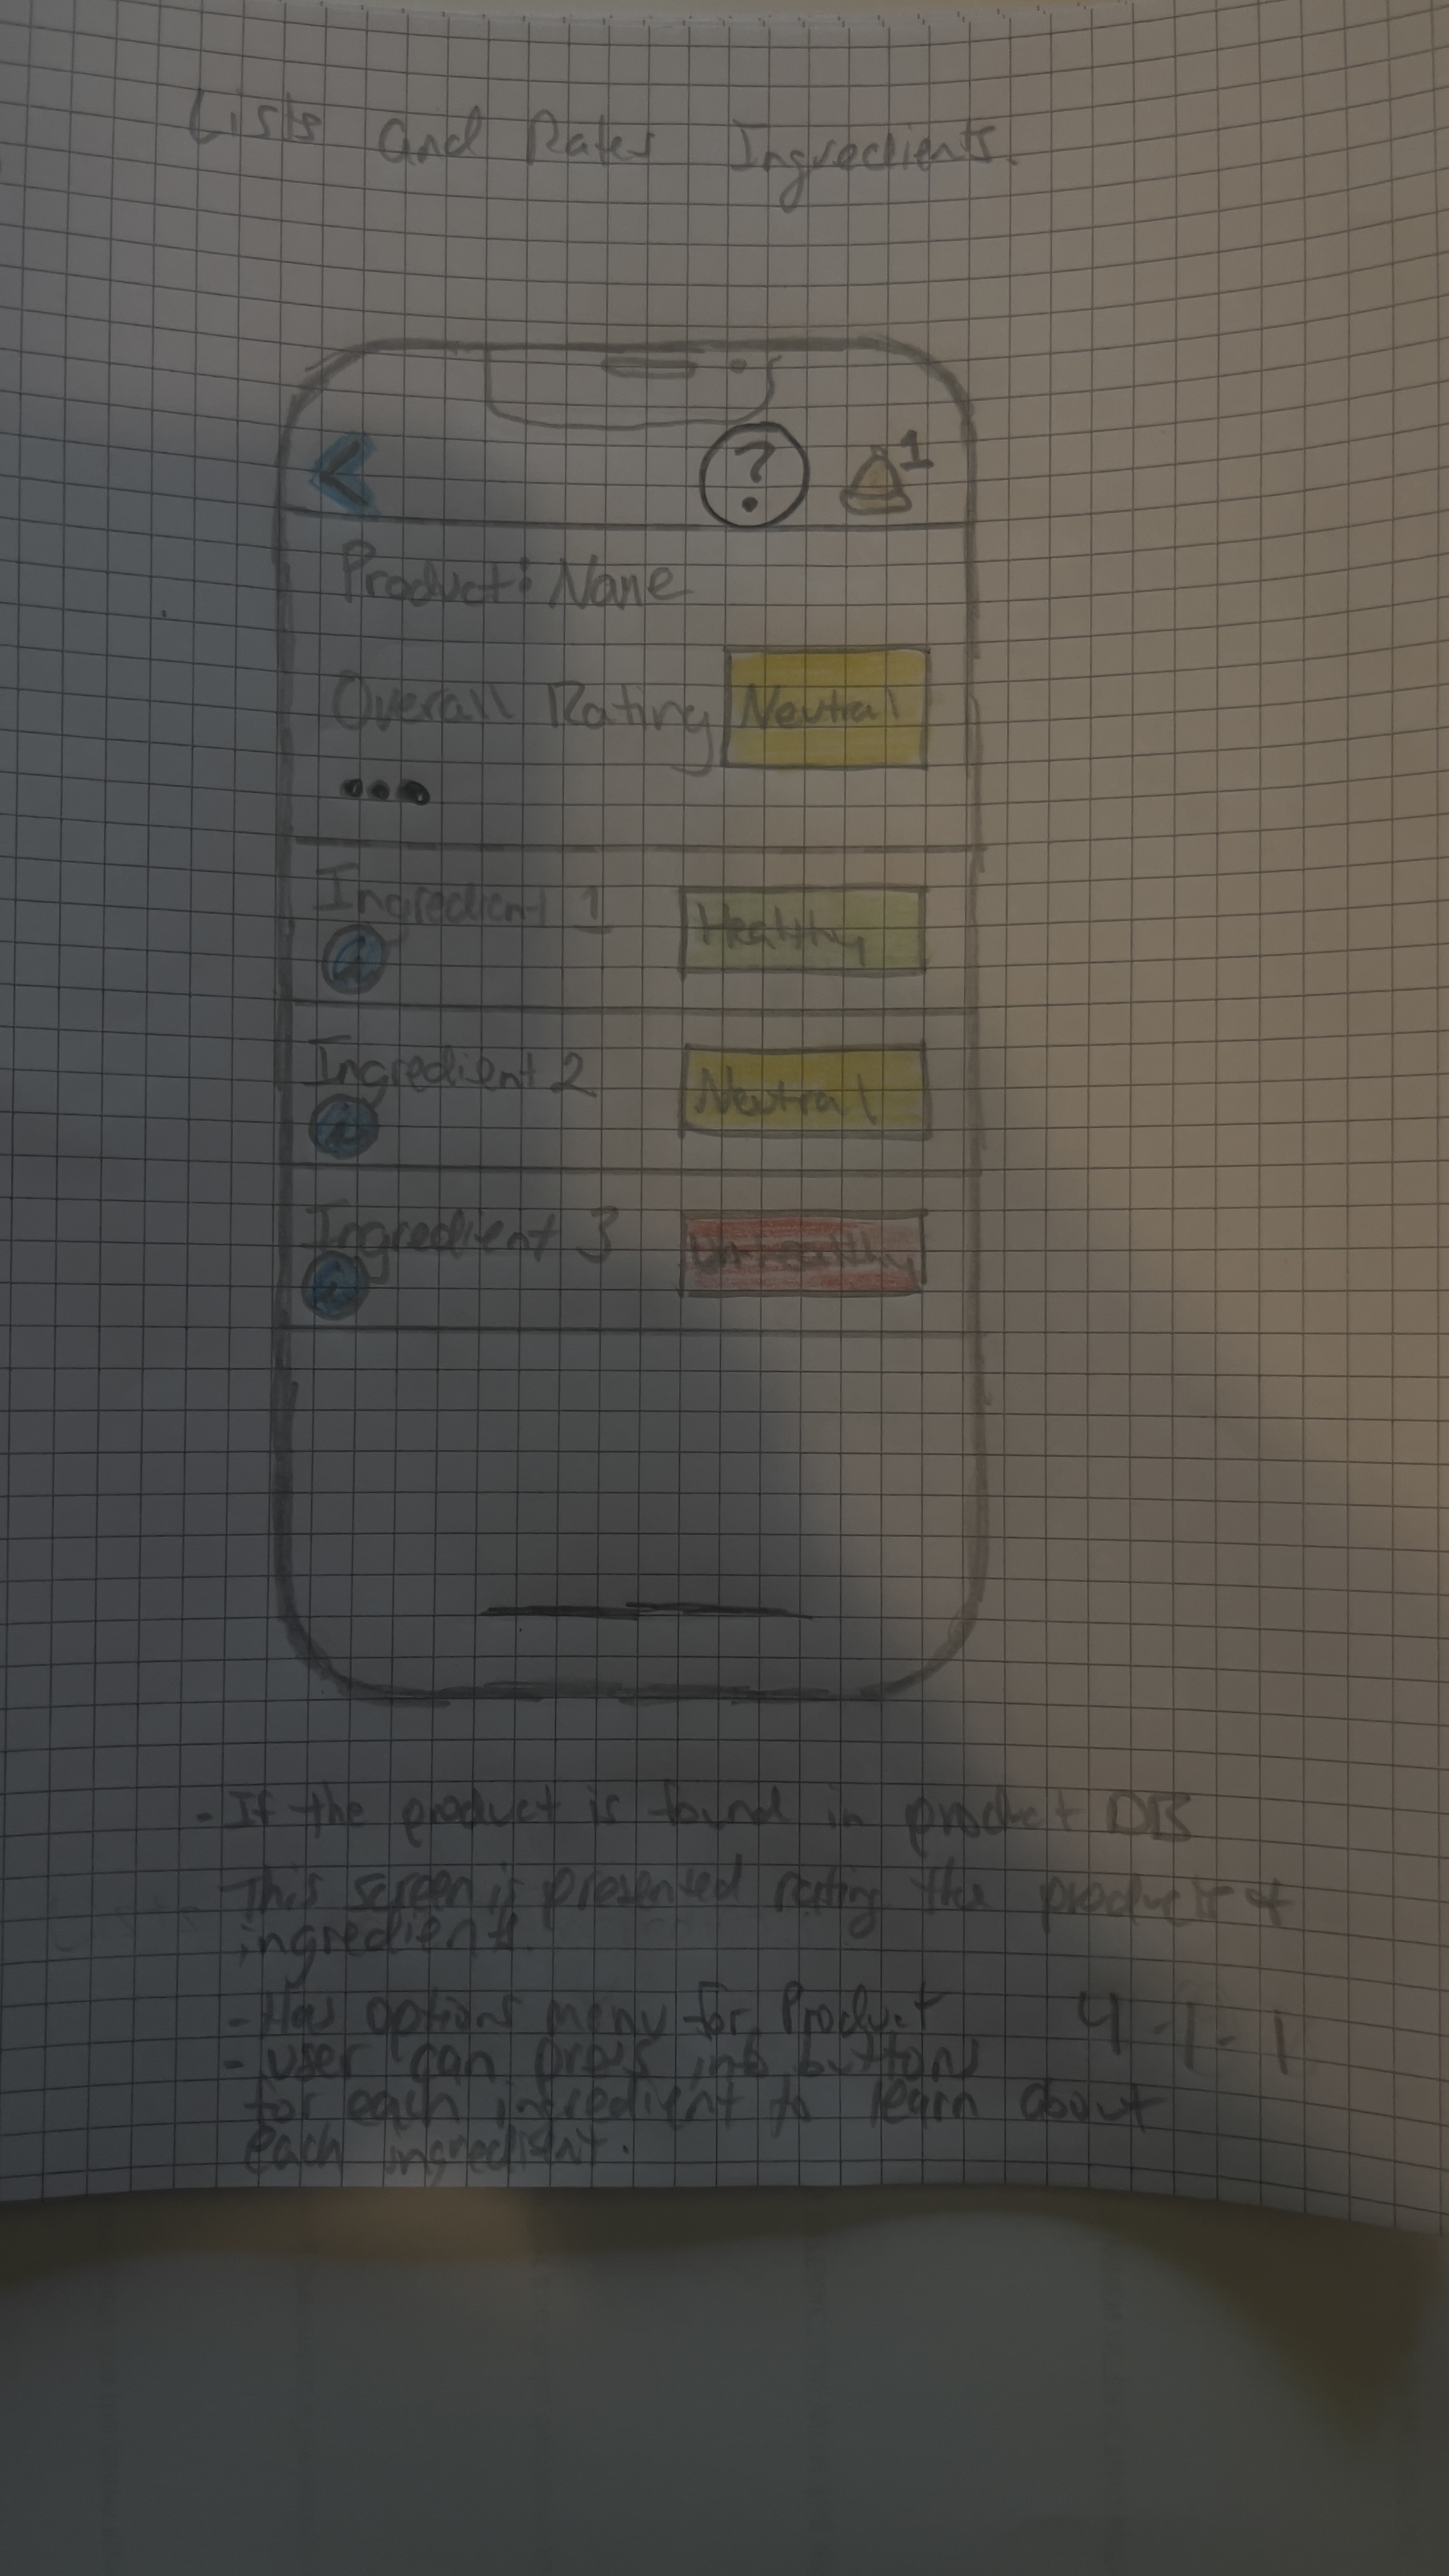 Lists and Rates Ingredients.
<
? 1
Product: Name
Overall Rating Neutral
•••
Ingredient 1 Healthy
i
Ingredient 2 Neutral
i
Ingredient 3 Unhealthy
i
- If the product is found in product DB
This screen is presented rating the product &
ingredients.
- Has options menu for Product
4.1.1
- user can press info buttons
for each ingredient to learn about
each ingredient.